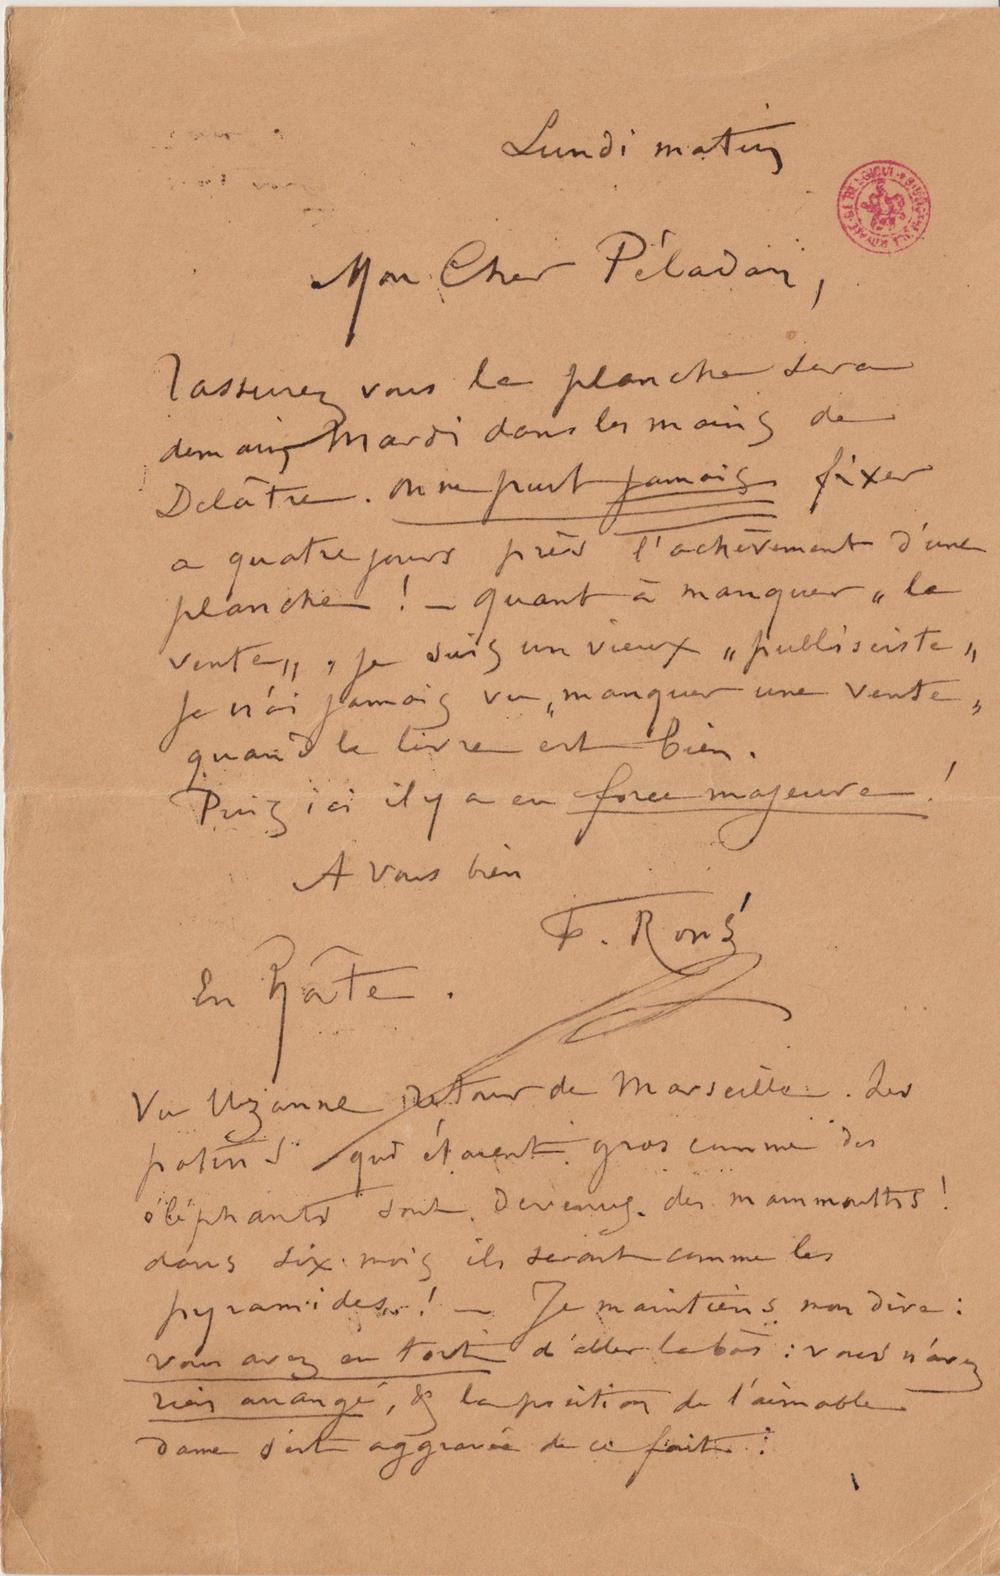 Lundi matin
Mon Cher Péladan,
Rassurez vous la planche sera
demain Mardi dans les mains de
Delâtre. On ne peut jamais fixer
a quatre jours près l'achèvement d'une
planche ! — Quant à manquer „la
vente„, je suis un vieux „publisciste„
Je n'ai jamais vu „manquer une vente„
quand le livre est bien.
Puis ici il y a eu force majeure !
A vous bien
F. Rops
En Hâte.
Vu Uzanne retour de Marseille. Les
potins qui étaient gros comme des
éléphants sont devenus des mammouths !
dans six mois ils seront comme les
pyramides ! — Je maintiens mon dire :
vous avez eu tort d'aller là bas : vous n'avez
rien arrangé, & la position de l'aimable
dame s'est aggravée de ce fait !